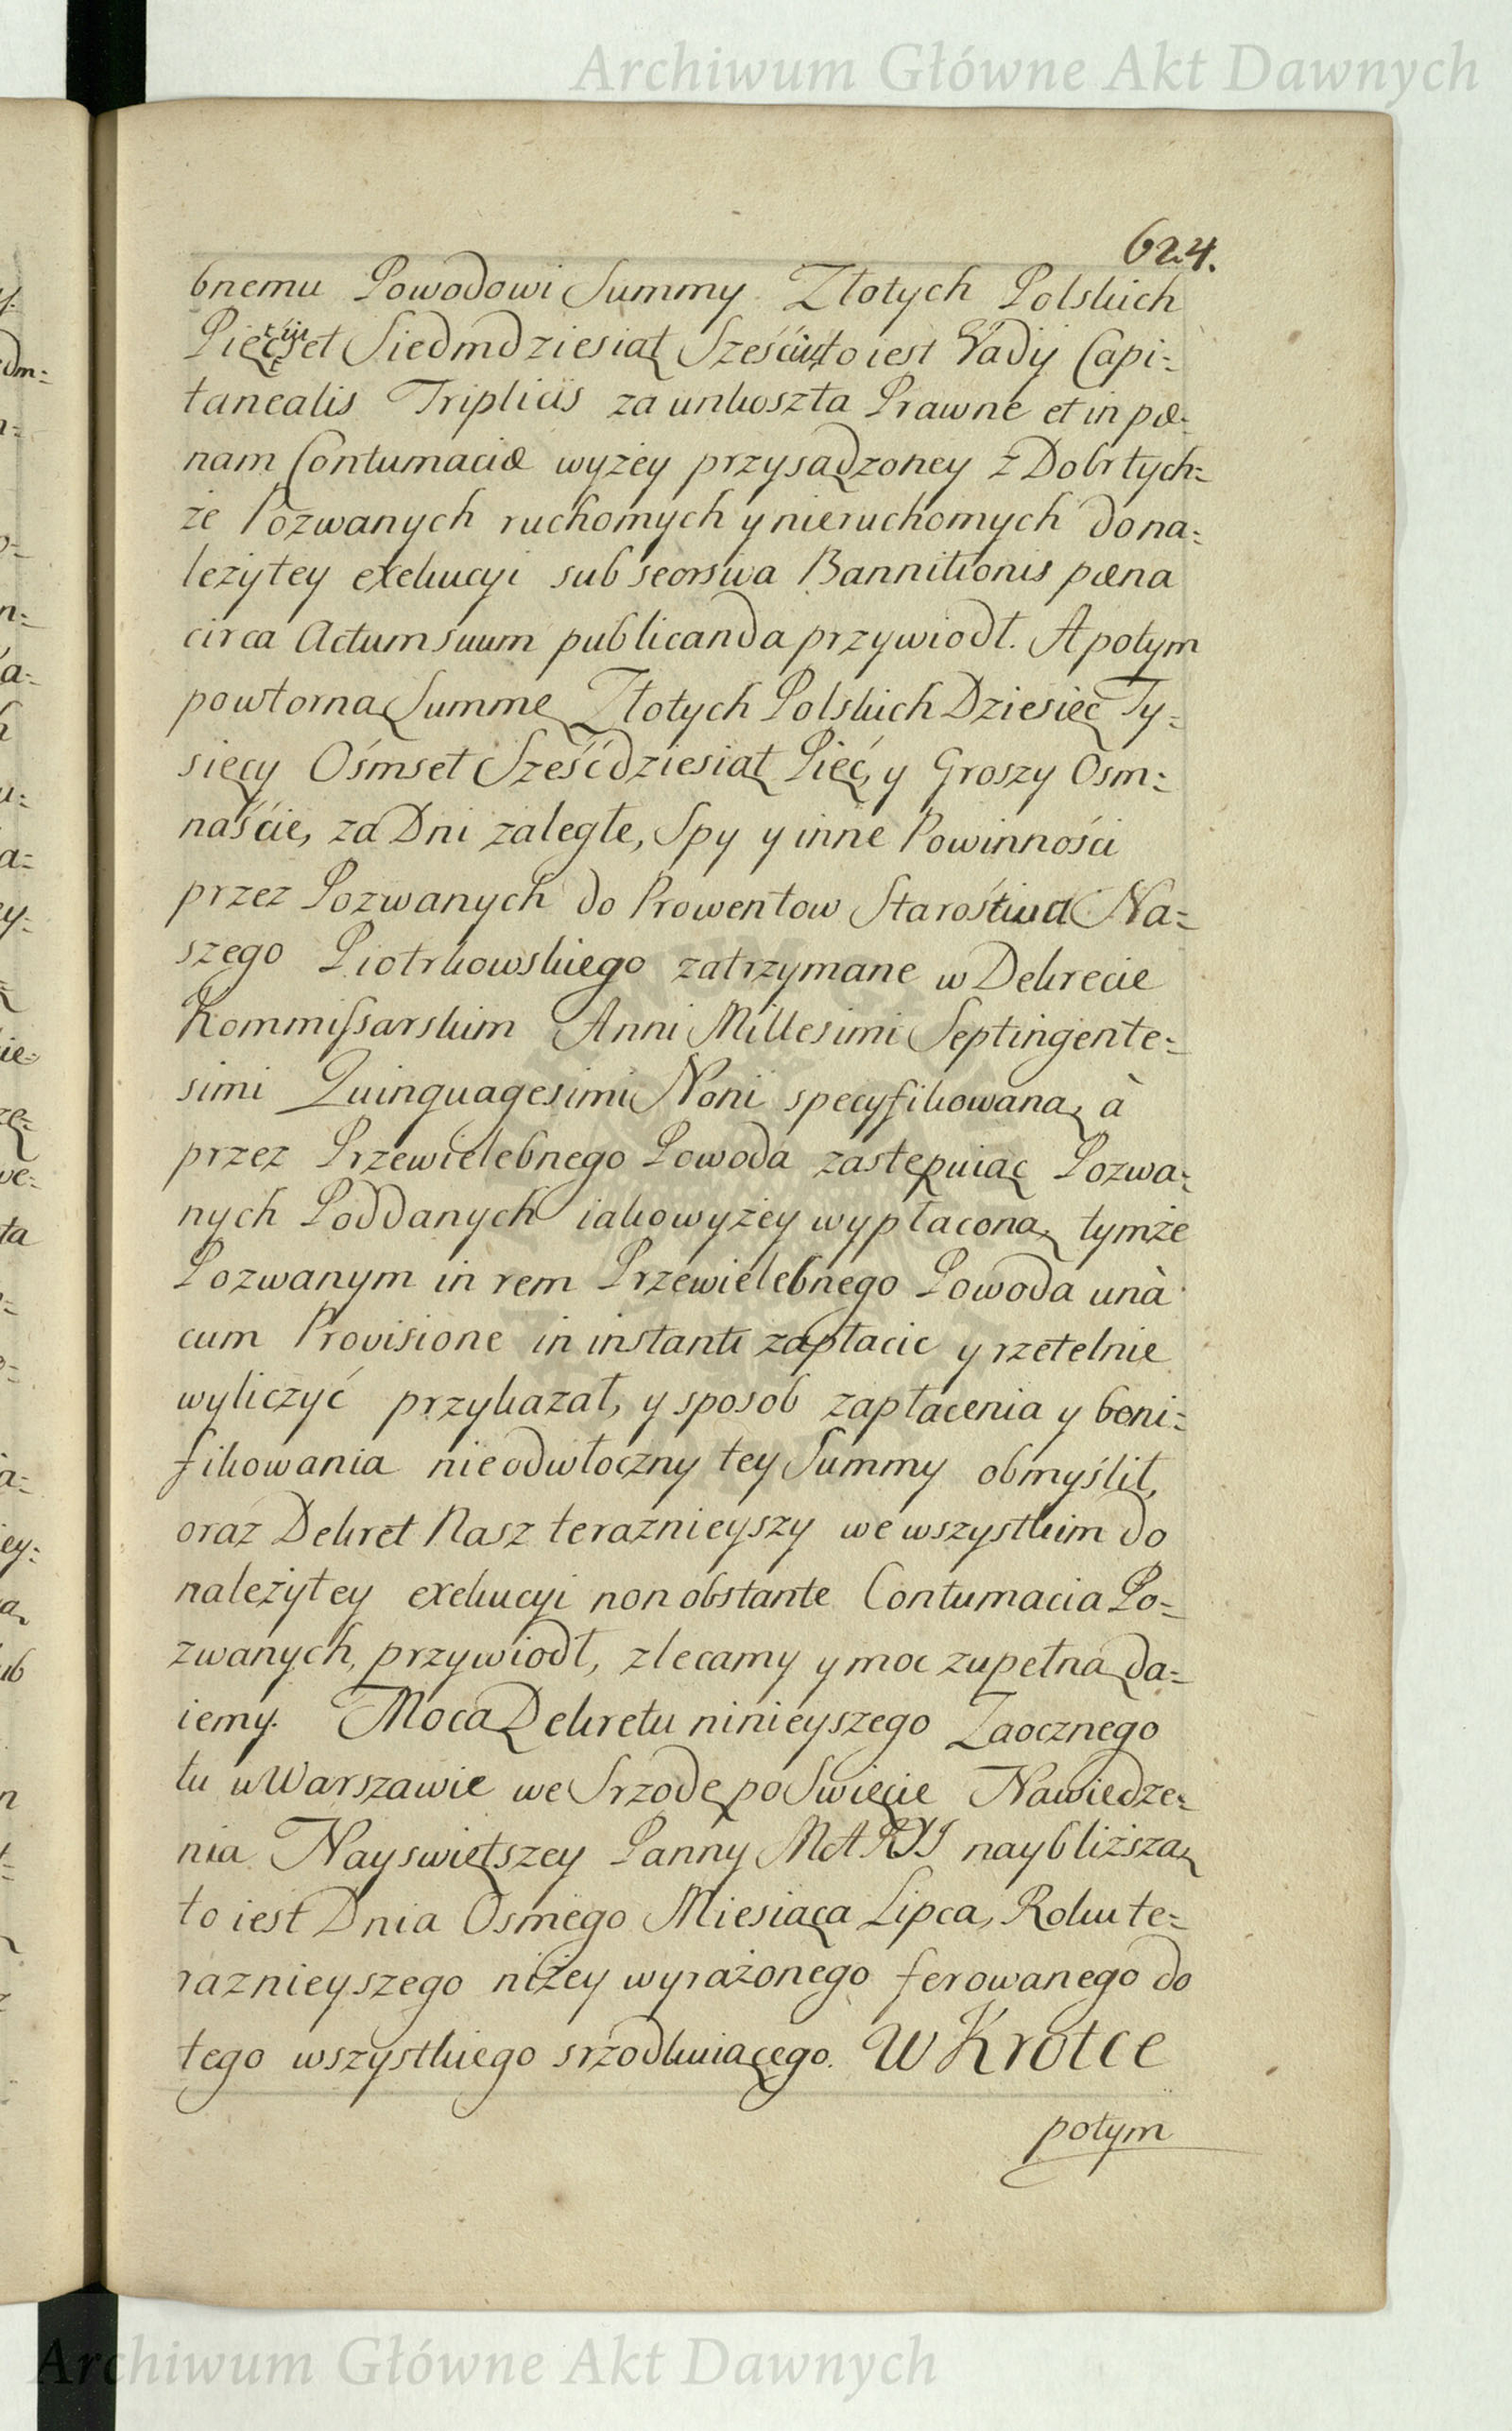 Archiwum Główne Akt Dawnych
624.
bnemu Powodowi Summy Złotych Polskich
Pięćset Siedmdziesiąt Sześciu to iest Vadij Capi=
tanealis Triplicis za unkoszta Prawne et in pæ=
nam Contumaciæ wyżey przysądzoney z Dobr tych=
że Pozwanych ruchomych y nieruchomych do na=
leżytey exekucyi sub seorsiva Bannitionis pæna
circa Actum suum publicanda przywiodł. A potym
powtorną Summę Złotych Polskich Dziesięć Ty=
sięcy Ośmset Sześćdziesiąt Pięć, y Groszy Osm=
naście, za Dni zaległe, Spy y inne Powinności
przez Pozwanych do Prowentow Starostwa Na=
szego Piotrkowskiego zatrzymane w Dekrecie
Kommissarskim Anni Millesimi Septingente=
simi Quinquagesimi Noni specyfikowaną, à
przez Przewielebnego Powoda zastępuiąc Pozwa=
nych Poddanych iako wyżey wypłaconą, tymże
Pozwanym in rem Przewielebnego Powoda unà
cum Provisione in instanti zapłacić y rzetelnie
wyliczyć przykazał, y sposob zapłacenia y boni=
fikowania nieodwłoczny tey Summy obmyślił,
oraz Dekret Nasz teraznieyszy we wszystkim do
należytey exekucyi non obstante Contumacia Po=
zwanych, przywiodł, zlecamy y moc zupełną da=
iemy. Mocą Dekretu ninieyszego Zaocznego
tu w Warszawie we Srzodę po Swięcie Nawiedze=
nia Nayswiętszey Panny MARYI naybliższą
to iest Dnia Osmego Miesiąca Lipca, Roku te=
raznieyszego niżey wyrażonego ferowanego do
tego wszystkiego srzodkuiącego. W Krotce
potym
Archiwum Główne Akt Dawnych